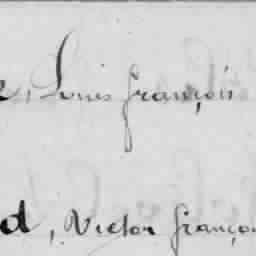 e, Louis françois
d, Victor françoi